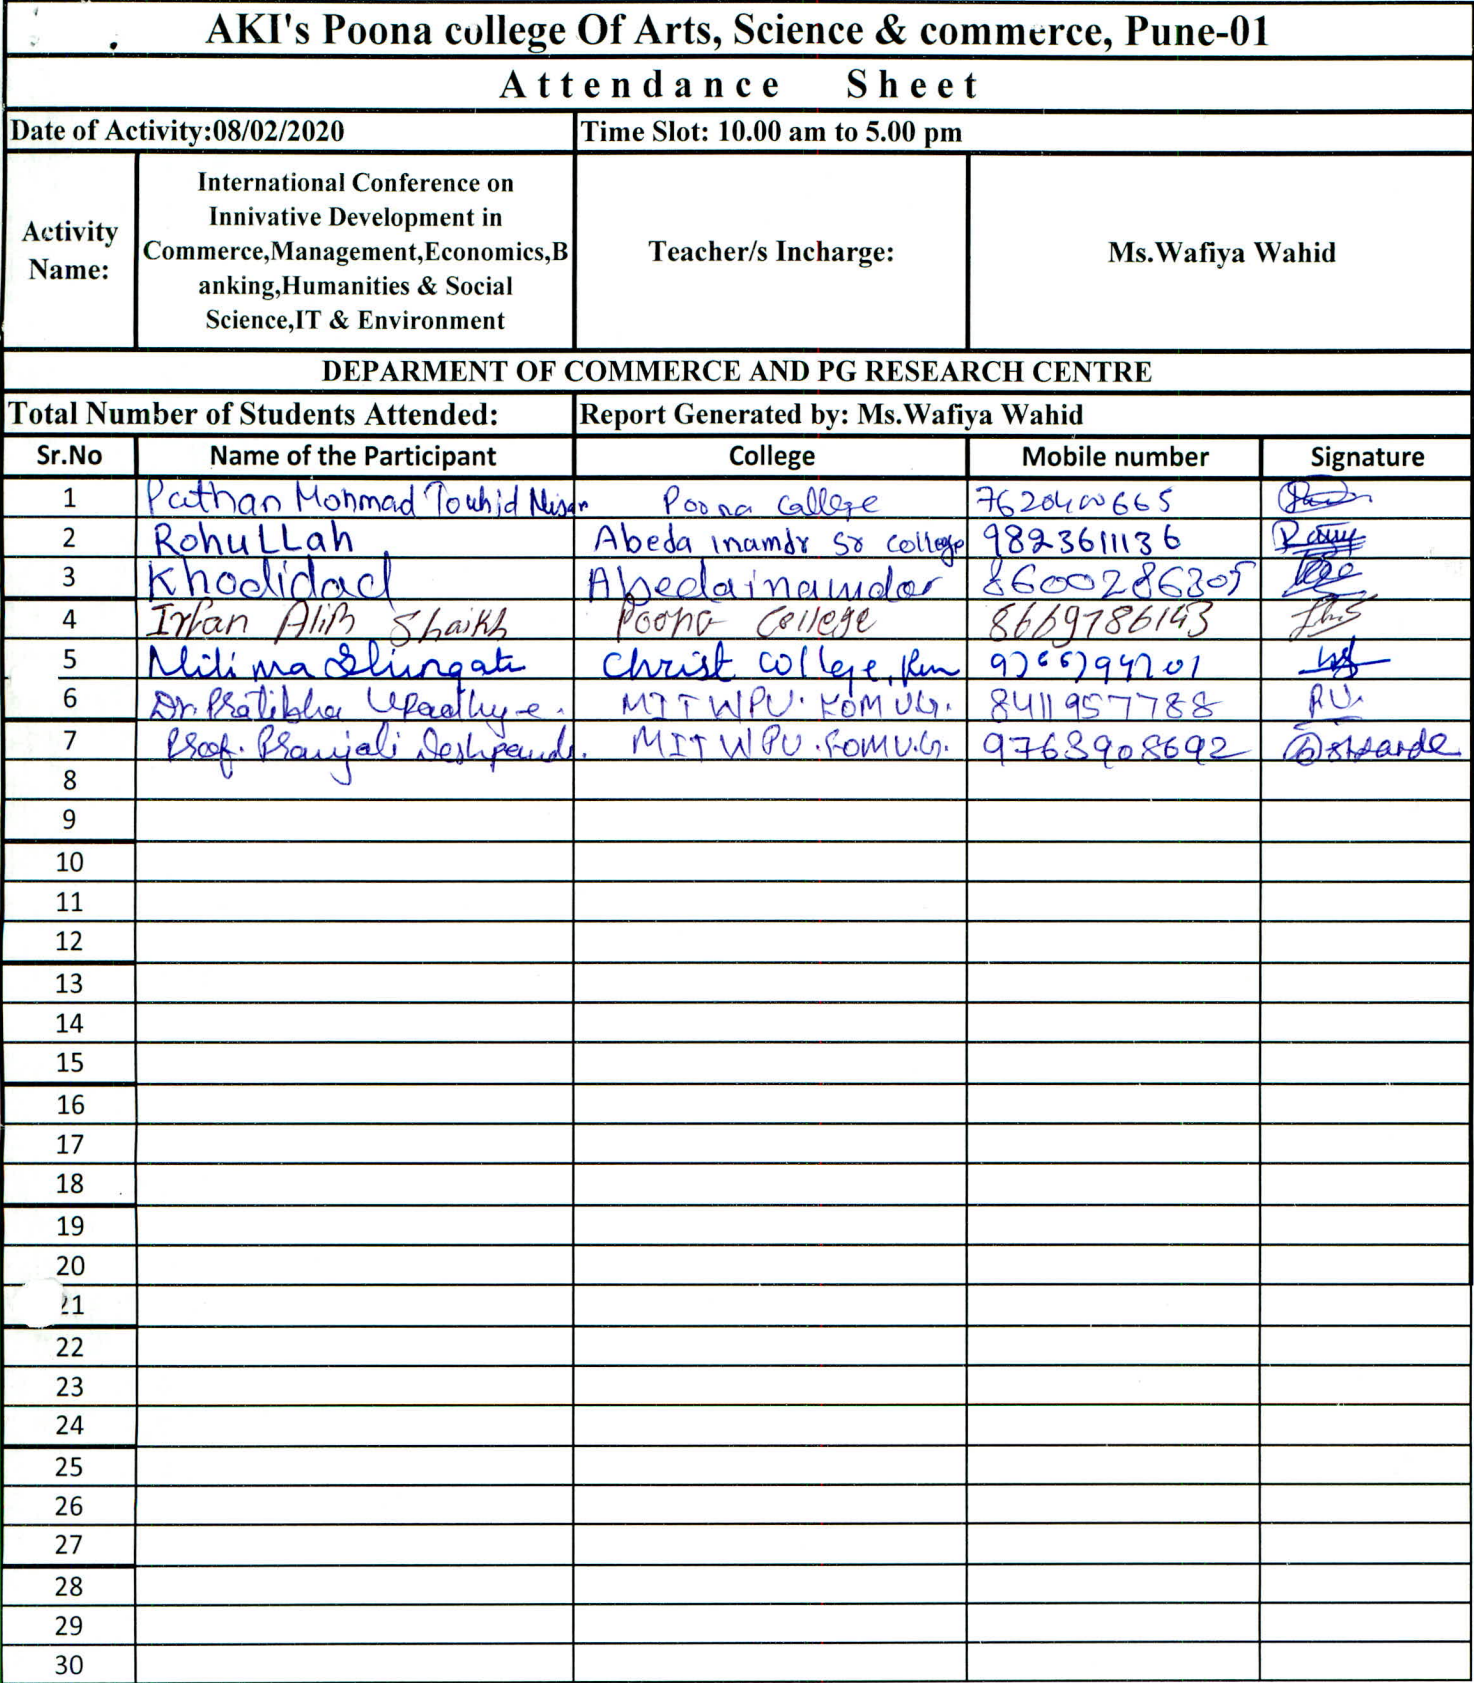 AKI's Poona college Of Arts, Science & commerce, Pune-01
Attendance Sheet
Date of Activity:08/02/2020 Time Slot: 10.00 am to 5.00 pm
Activity Name: International Conference on Innivative Development in Commerce,Management,Economics,Banking,Humanities & Social Science,IT & Environment Teacher/s Incharge: Ms.Wafiya Wahid
DEPARMENT OF COMMERCE AND PG RESEARCH CENTRE
Total Number of Students Attended: Report Generated by: Ms.Wafiya Wahid
Sr.No Name of the Participant College Mobile number Signature
1 Pathan Mohmad Touhid Nisar Poona College 7620400665
2 Rohullah Abeda inamdr Sr college 9823611136
3 Khodidad Abedainamdar 8600286305
4 Irfan Shaikh Poona College 8669786143
5 Christ College, Pun
6 Dr. Pratibha Upadhye. MITWPU. 8411957788 PU.
7 Prof. Pranjali Deshpande. MITWPU. 9763908692
8
9
10
11
12
13
14
15
16
17
18
19
20
21
22
23
24
25
26
27
28
29
30